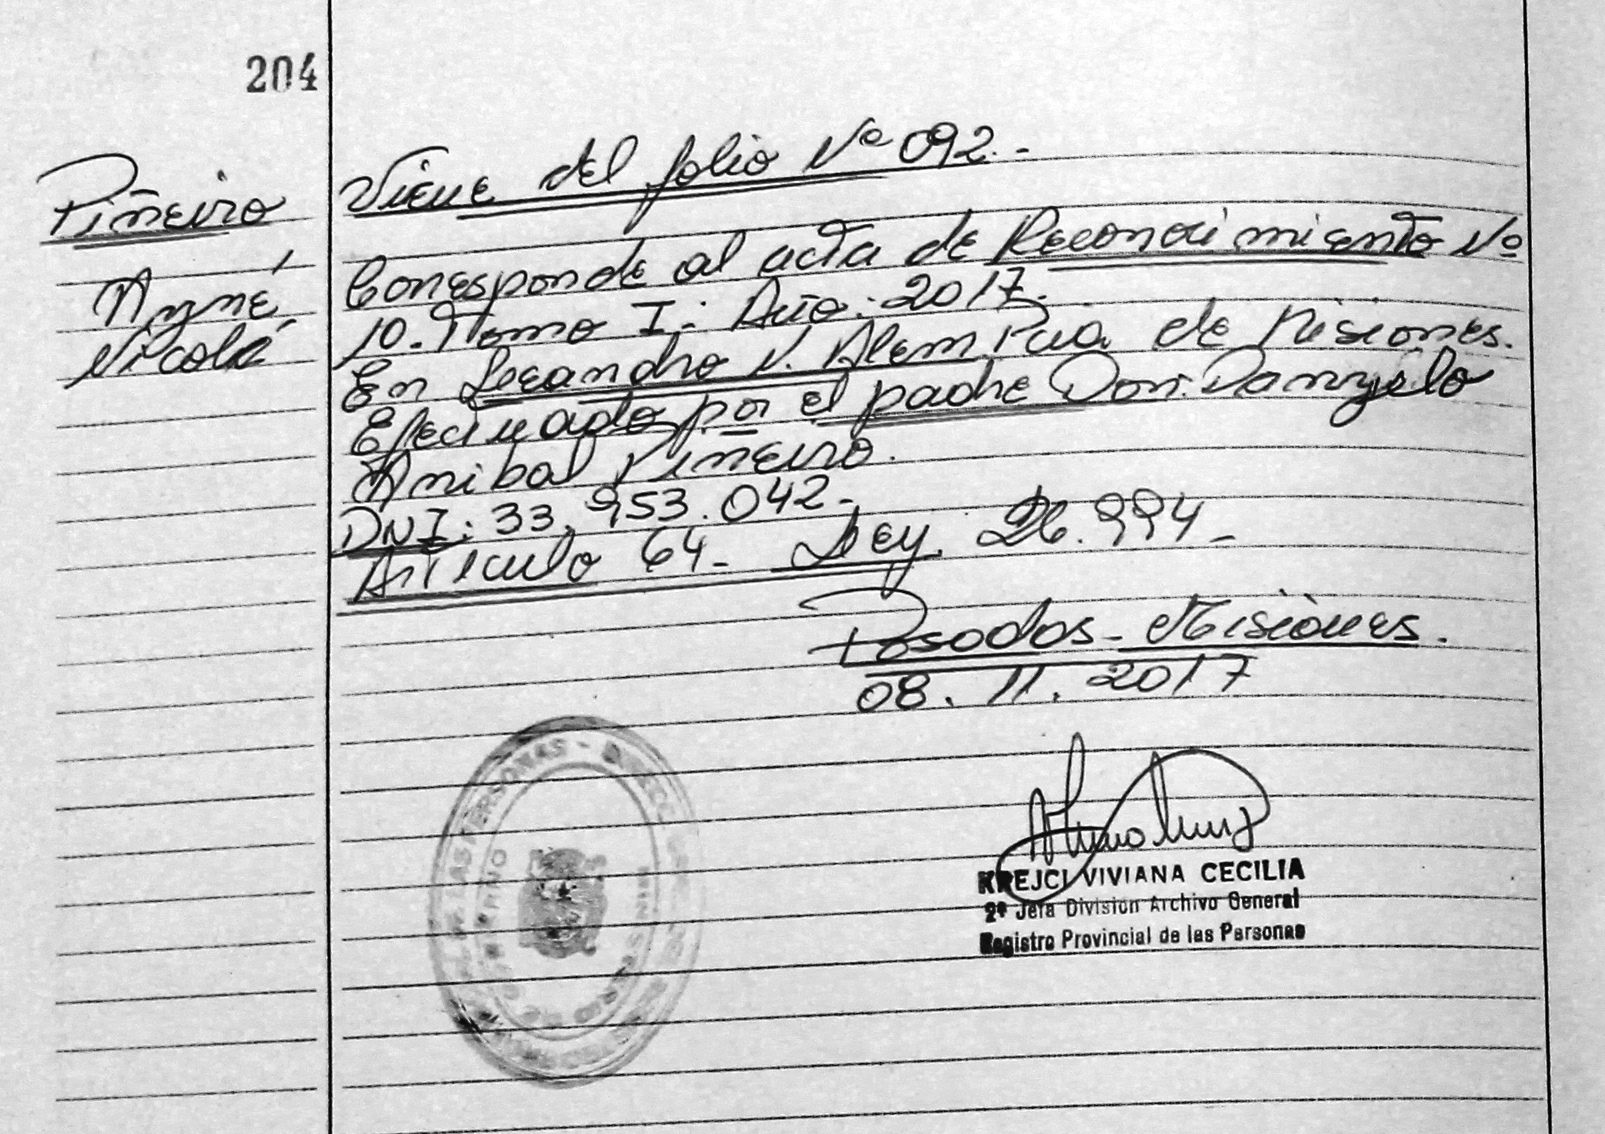 204
Piñeiro
Nicolá
Viene del folio Nº 092.-
Corresponde al acta de Reconocimiento Nº
10. Tomo I. Año: 2017.
En Leandro N. Alem Pcia de Misiones.
Efectuado por el padre Don: Danyelo
Anibal Piñeiro.
DNI: 33.953.042-
Artículo 64- Ley 26.994-
Posadas- Misiones.
08. 11. 2017
KREJCI VIVIANA CECILIA
2º Jefa División Archivo General
Registro Provincial de las Personas
DE LAS PERSONAS - DIRECC